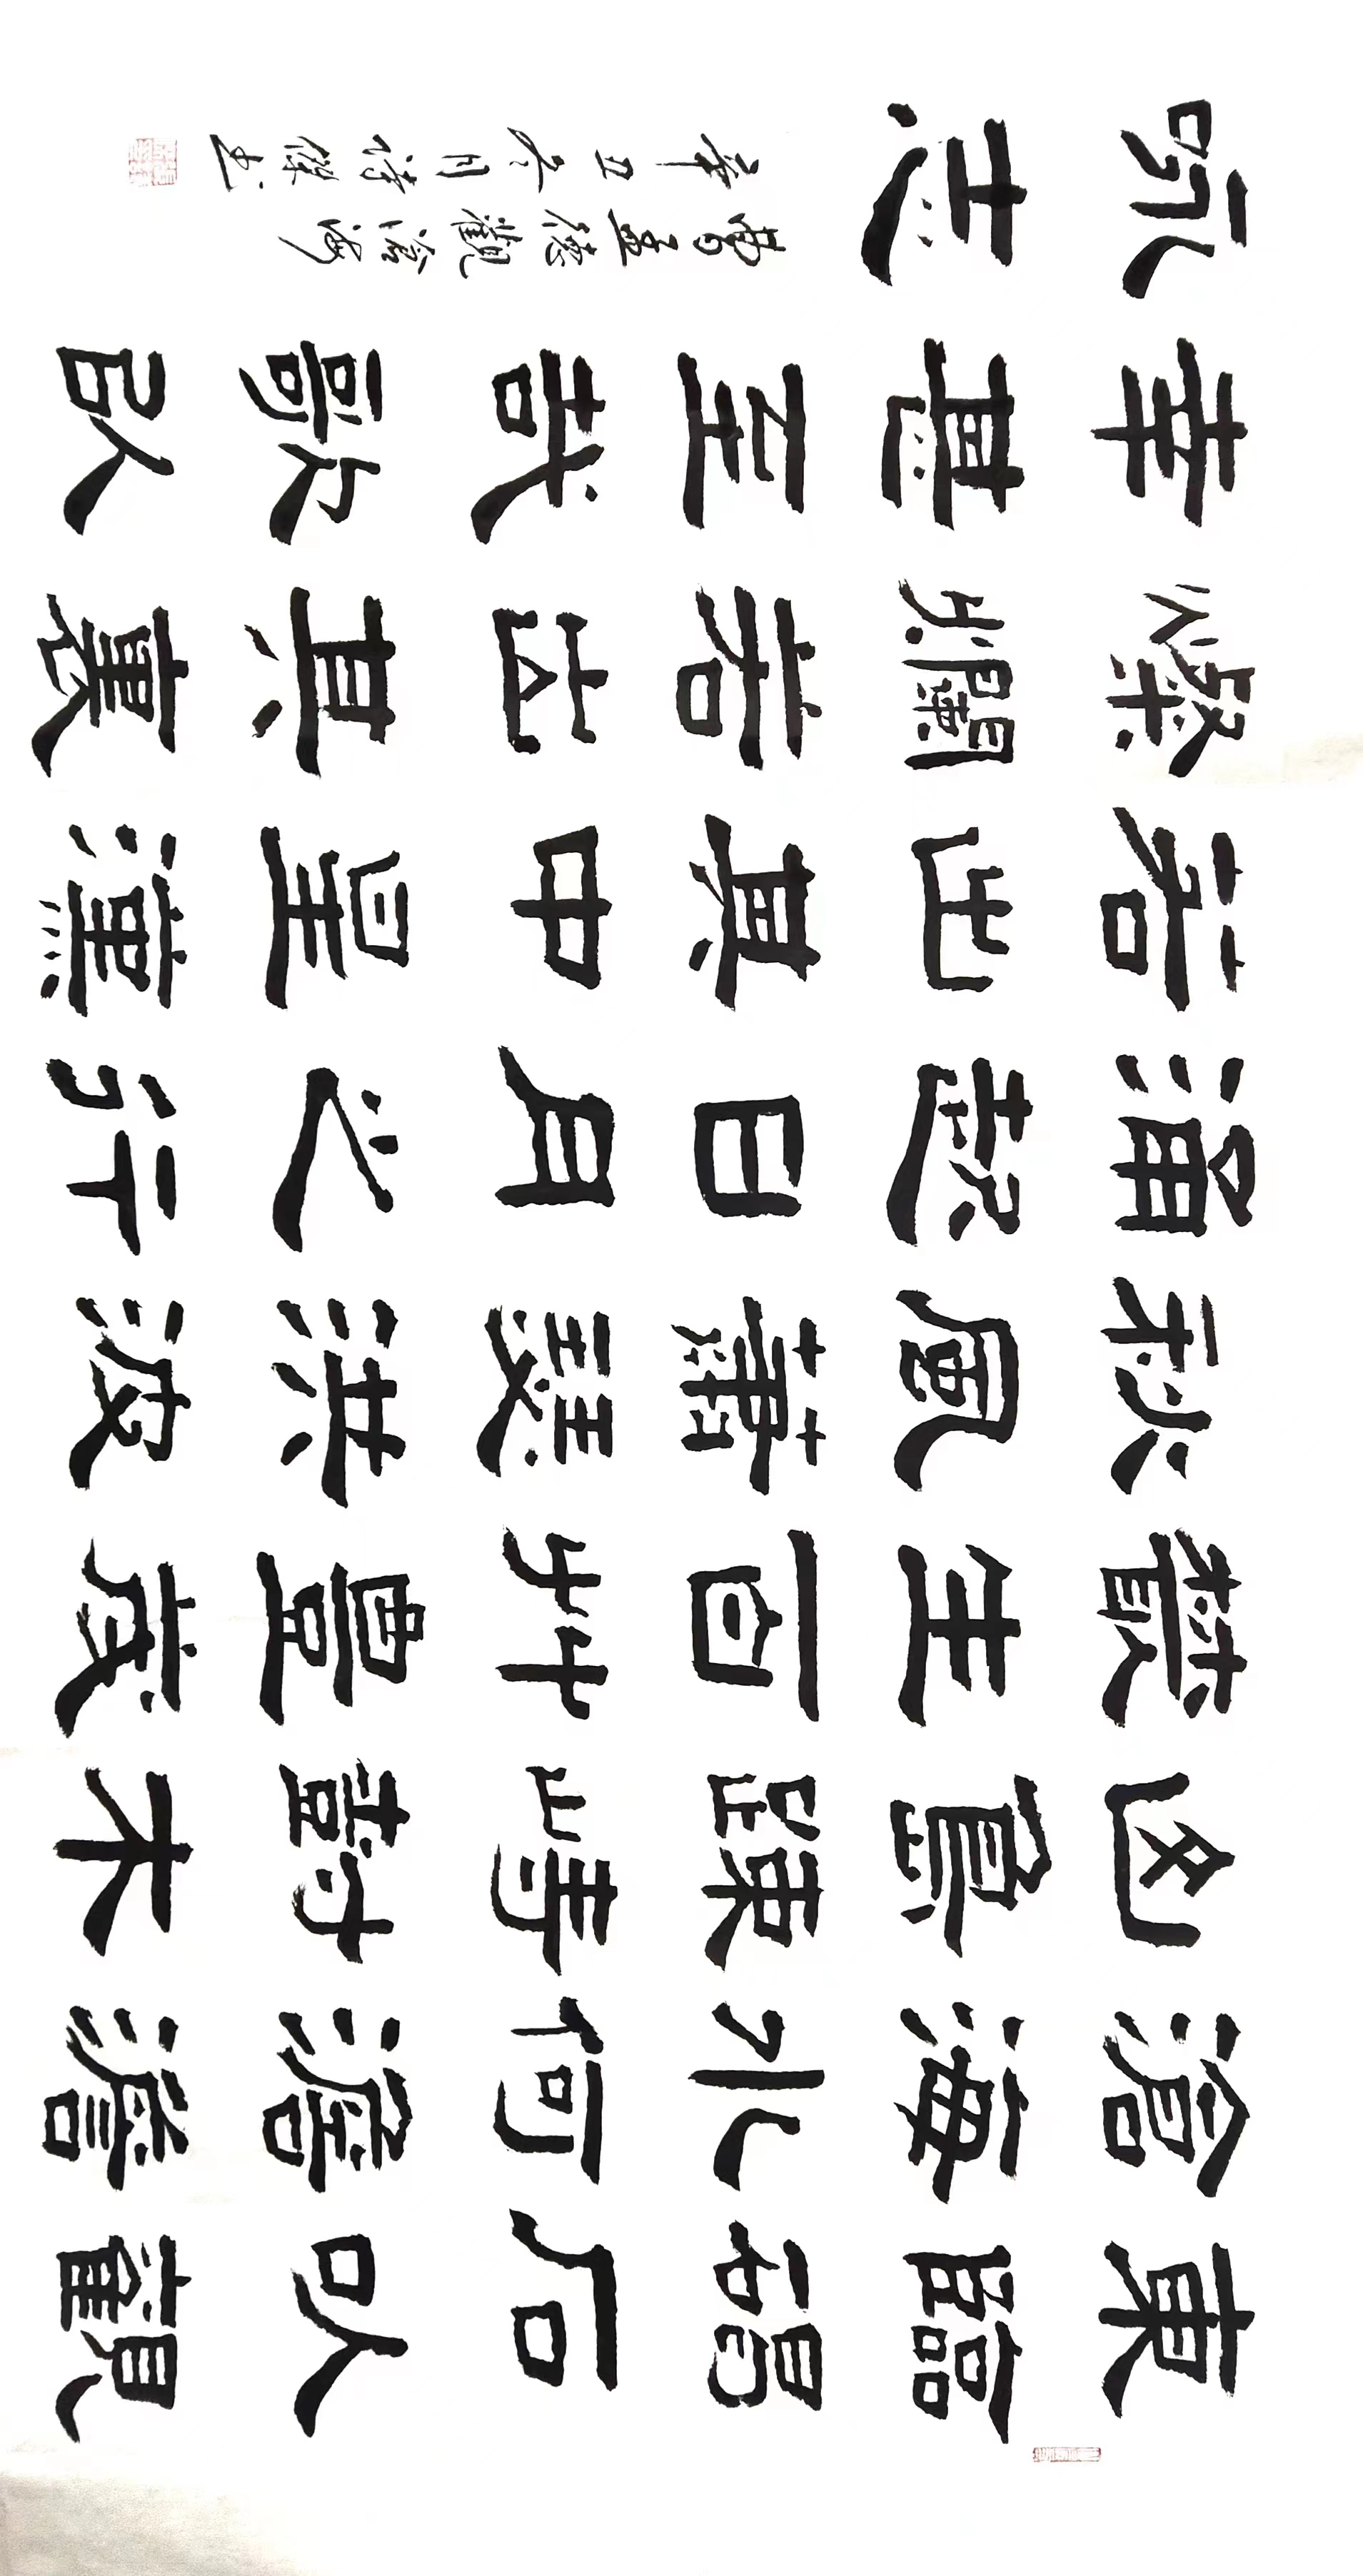 東臨碣石以觀
滄海水何澹澹
山島竦峙樹木
叢生百艸豐茂
秋風蕭瑟洪波
涌起日月之行
若出其中星漢
燦爛若出其裏
幸甚至哉歌以
咏志
曹孟德觀滄海
辛丑冬月